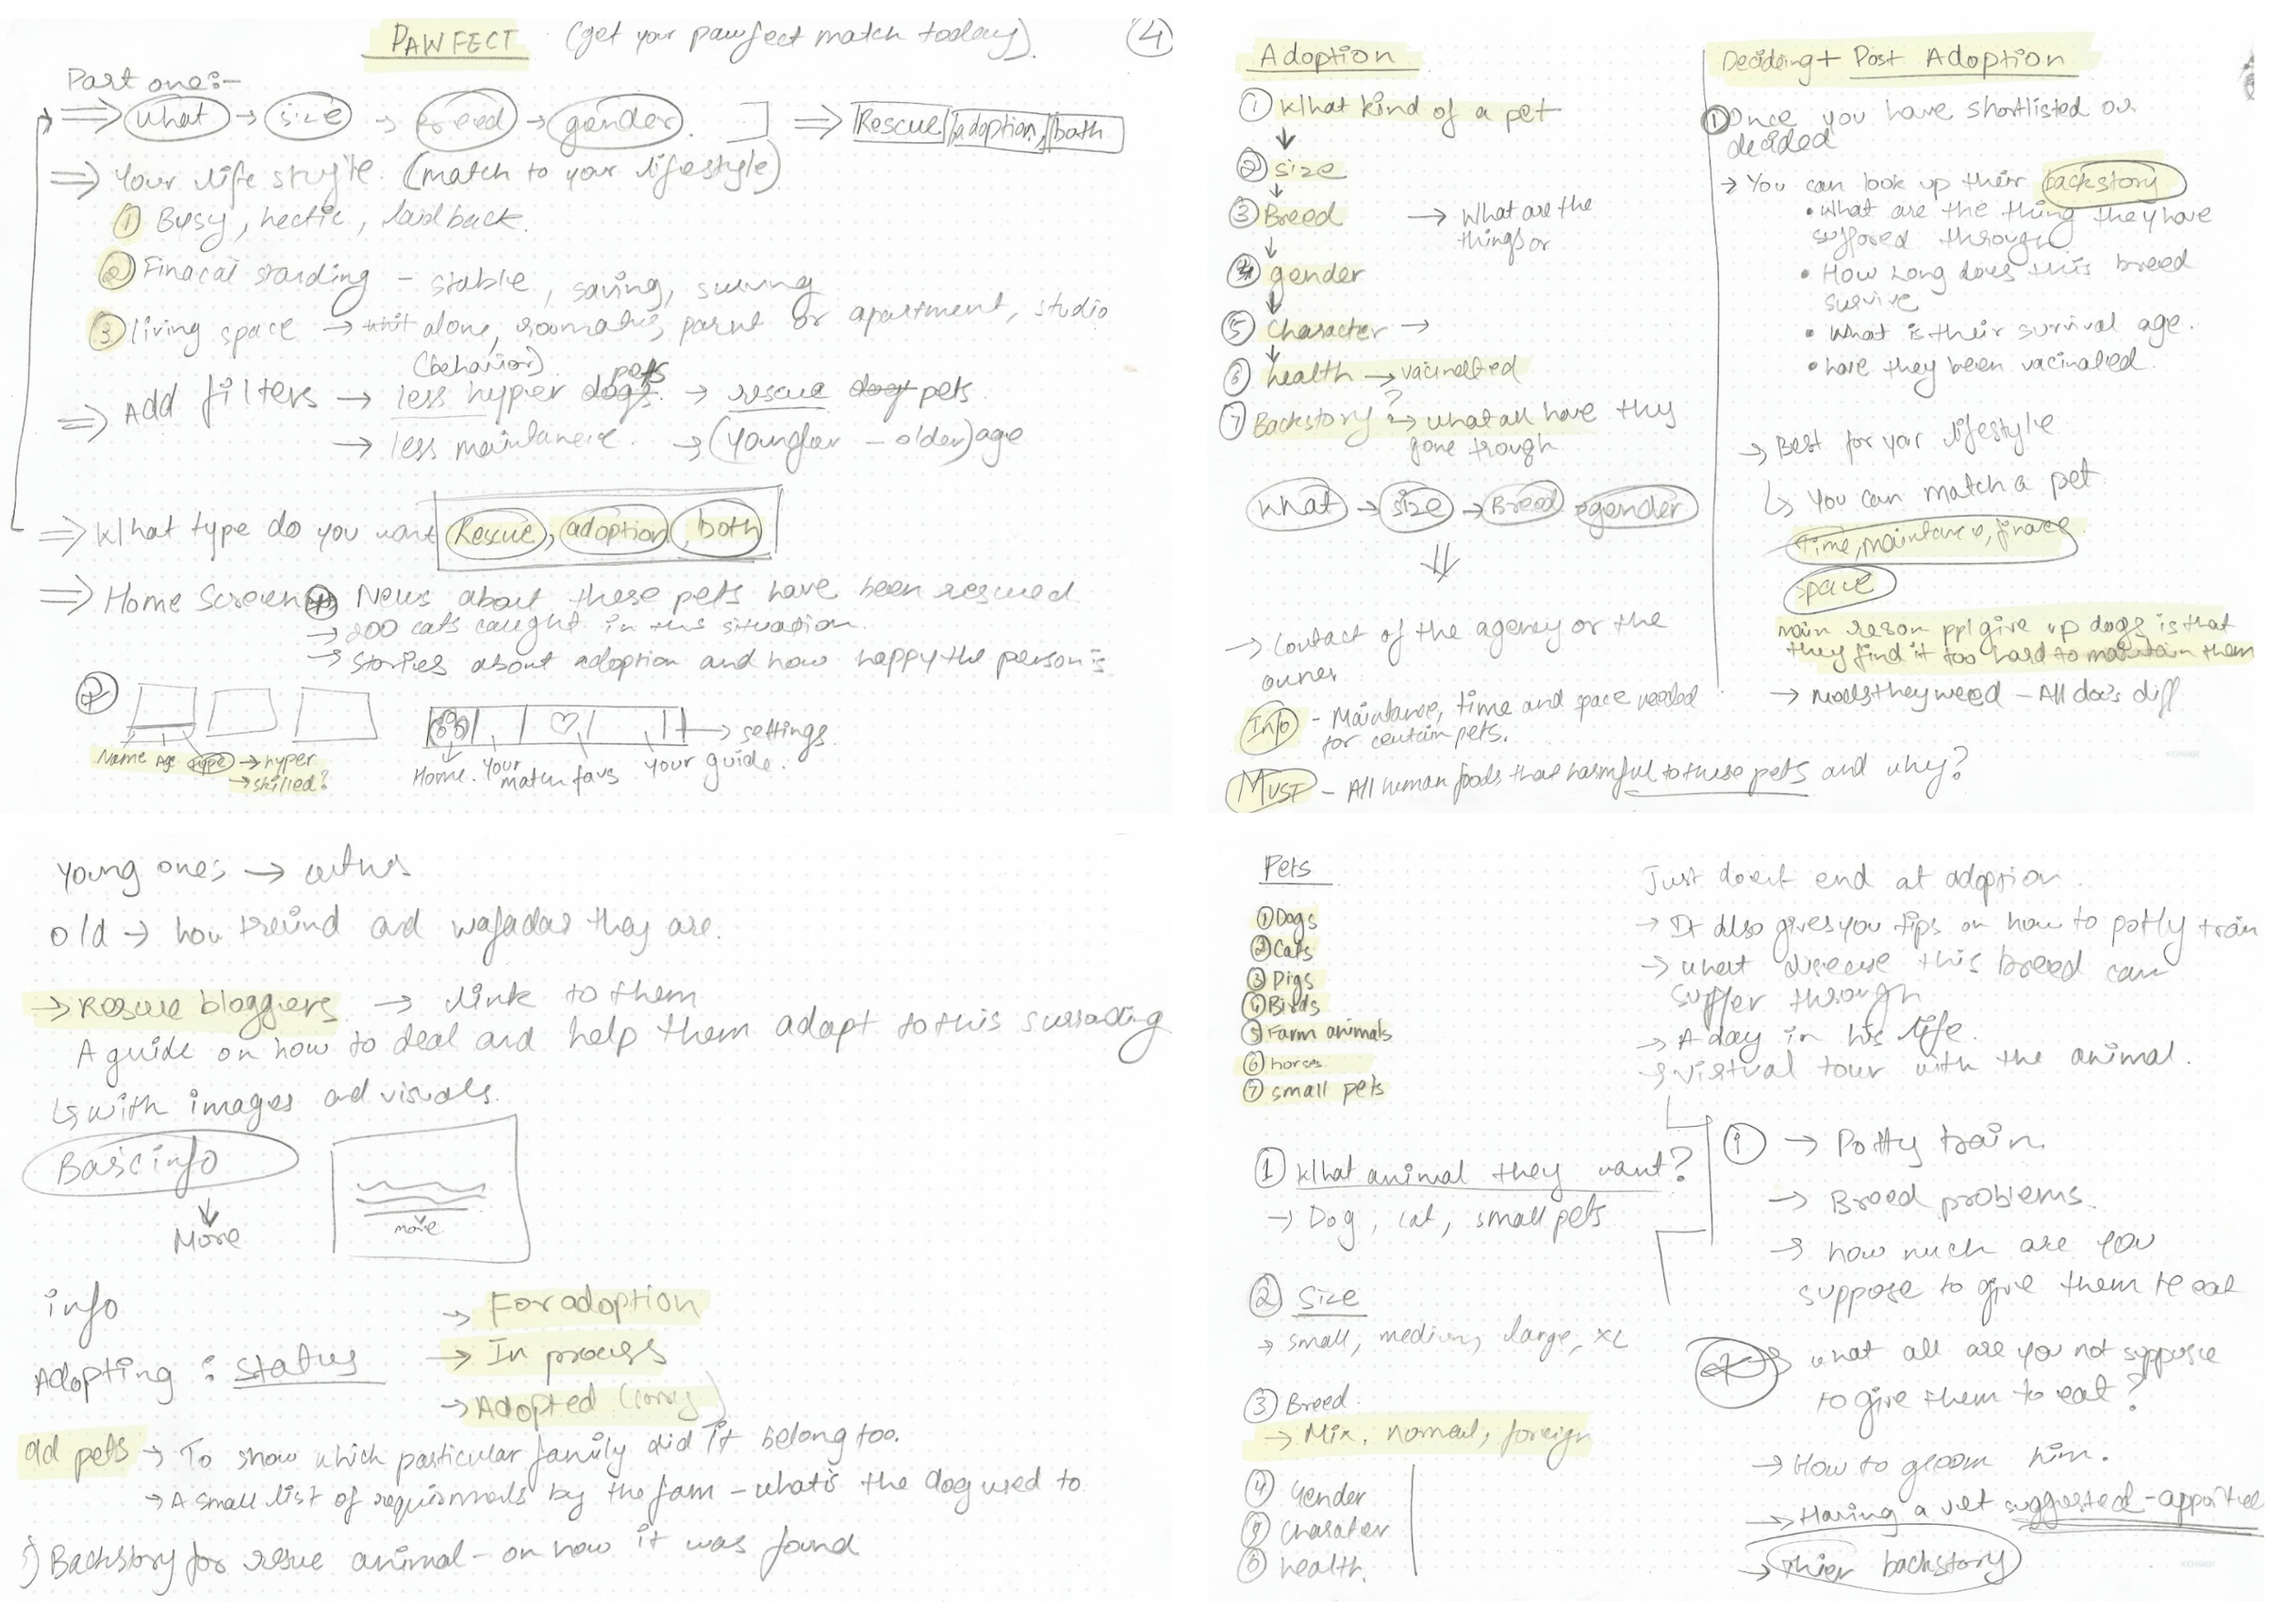 PAWFECT (get your pawfect match today). 4
Part one:-
⇒ what → size → Breed → gender. ⇒ Rescue adoption, both
⇒ Your life style. (match to your lifestyle)
① Busy, hectic, laid back.
② Finacal standing - stable, saving,
③ living space → alone, roomates, parnt or apartment, studio
(behavior)
⇒ Add filters → less hyper dogs pets → rescue dog pets
→ less maintanence. → (younger - older) age
⇒ What type do you want Rescue, adoption, both
⇒ Home Screen News about these pets have been rescued
→ 200 cats caught in this situation.
→ Stories about adoption and how happy the person is
Name Age type → hyper
→ skilled?
→ settings
Home. Your match favs your guide.
Adoption
① What kind of a pet
② size
③ Breed → What are the things or
④ gender
⑤ Character →
⑥ health → vacinated
⑦ Backstory ? → what all have they
gone trough
what → size → Breed → gender
→ Contact of the agency or the
owner
Info - Maintance, time and space needed
for certain pets.
MUST - All human foods that harmful to these pets and why?
Deciding + Post Adoption
① Once you have shortlisted or
decided
→ You can look up their backstory
• What are the thing they have
suffored through
• How long does this breed
survive
• What is their survival age.
• have they been vacinated.
→ Best for your lifestyle
↳ You can match a pet
time, maintance, finace
space
main reson ppl give up dogs is that
they find it too hard to maintain them
→ diff
Young ones →
old → how and wafadar they are.
→ Rescue bloggers → link to them
A guide on how to deal and help them adapt to this surrouding
↳ with images and visuals.
Basic info
↓
More
more
info
Adopting : status → For adoption
→ In process
→ Adopted (sorry)
old pets → To show which particular family did it belong too.
→ A small list of requirments by the fam - what's the dog used to
Backstory for resue animal - on how it was found
Pets
① Dogs
② Cats
③ Pigs
④ Birds
⑤ Farm animals
⑥ horses
⑦ small pets
① What animal they want?
→ Dog, cat, small pets
② Size
→ small, medium, large, XL
③ Breed.
→ Mix, normal, foreign
④ Gender
⑤ Charater
⑥ health.
Just doent end at adoption.
→ It also gives you tips on how to potty train
→ what disease this breed can
suffer through
→ A day in his life.
→ Virtual tour with the animal.
① → Potty train.
→ Breed problems.
→ how much are you
suppose to give them to eat
→ what all are you not suppose
to give them to eat?
→ How to groom him.
→ Having a vet suggested -
→ Thier backstory